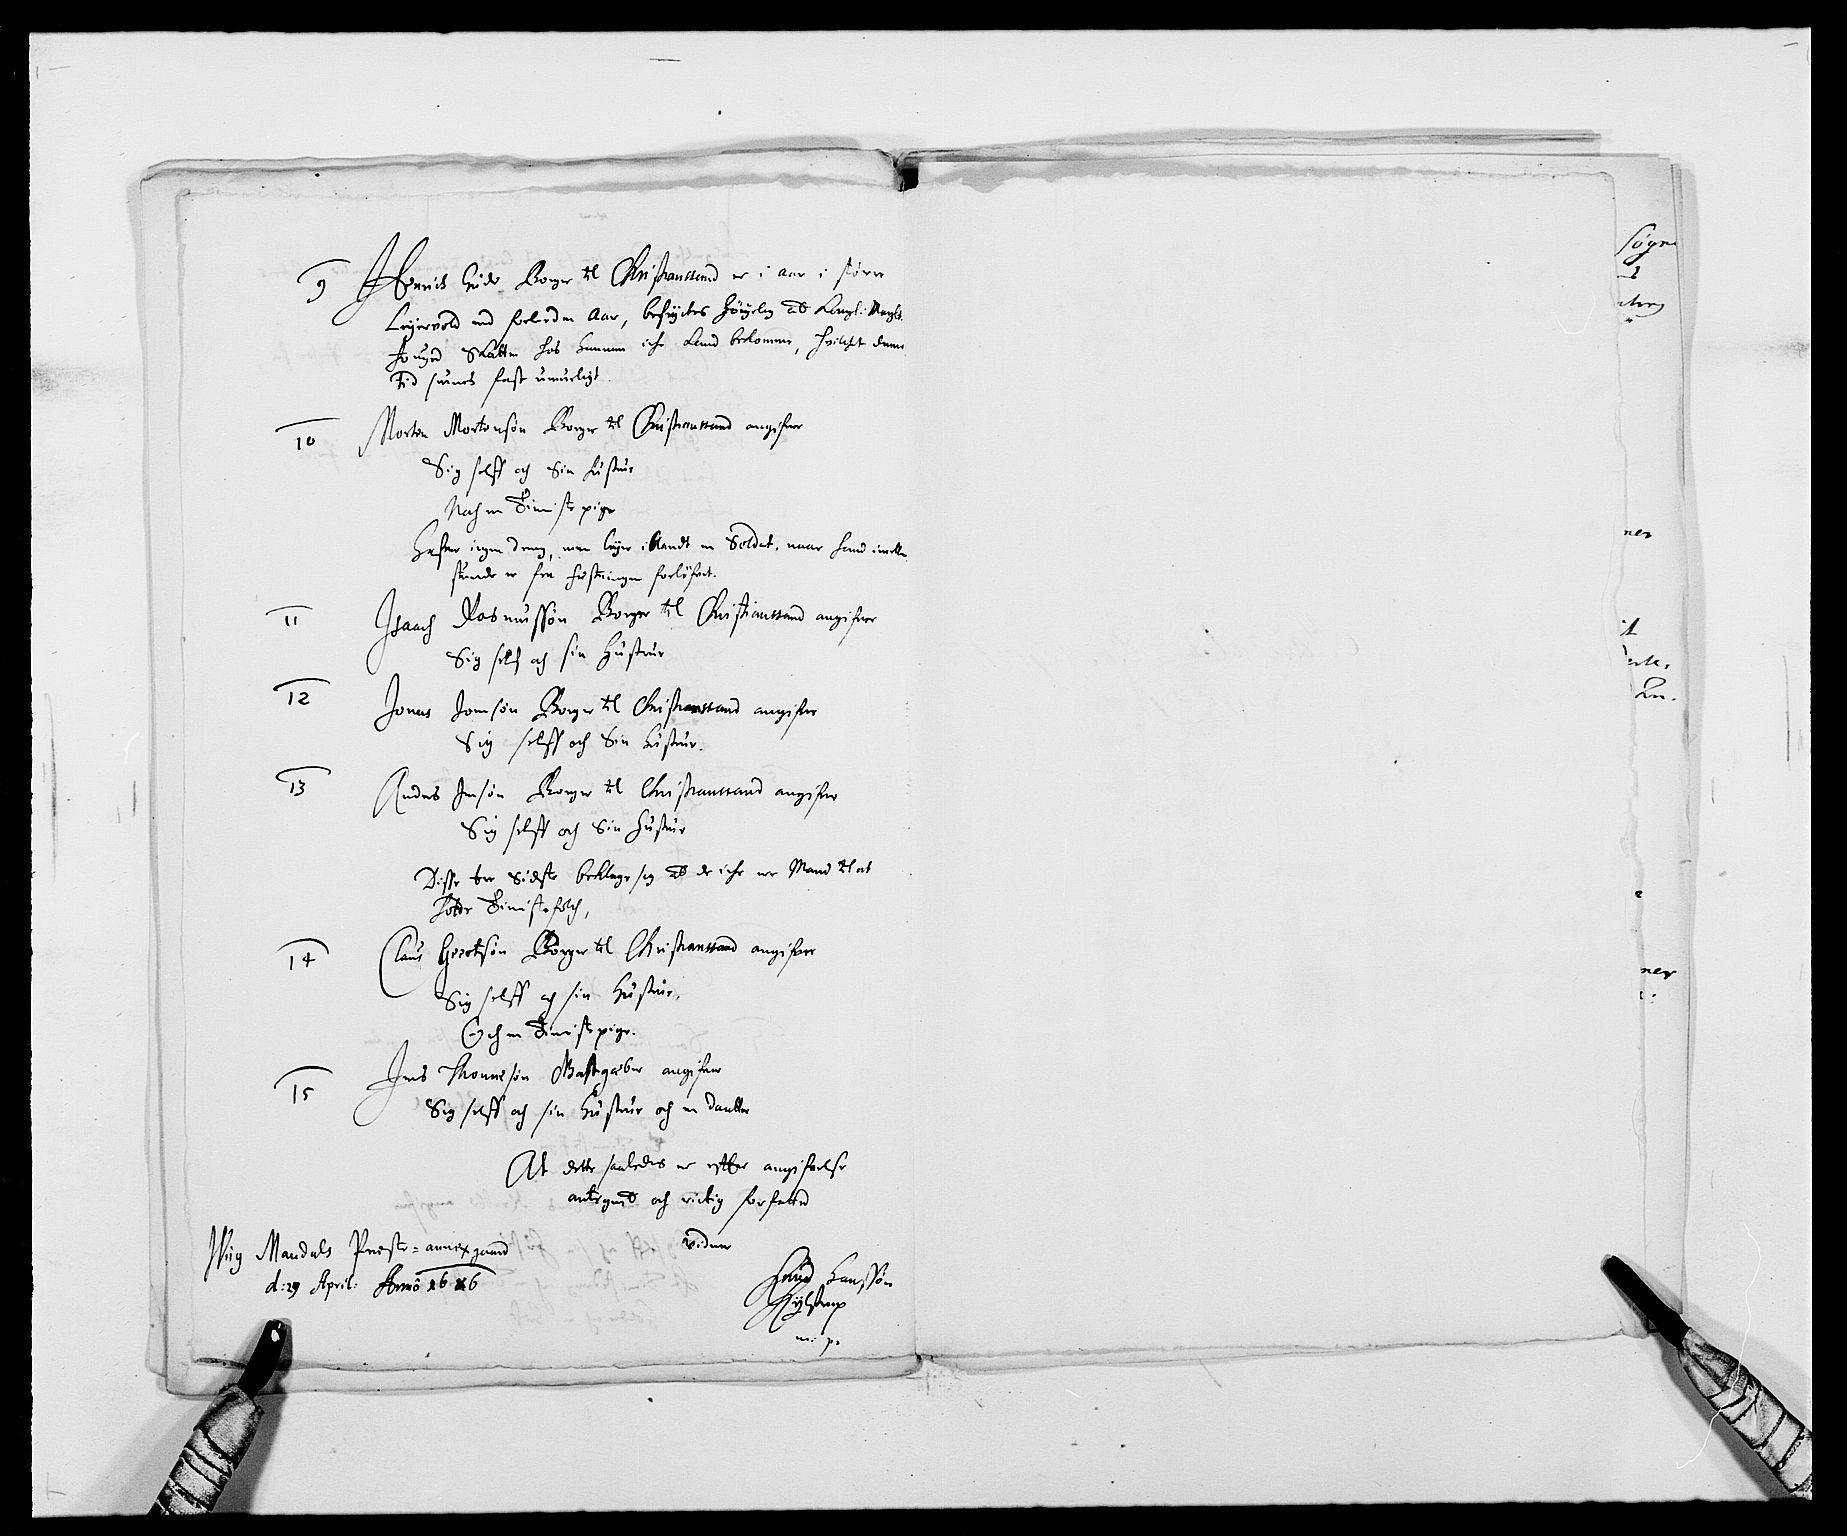 9 Henrich Borger til Christianssand er i aar i større
Leyervold end forleden Aar, befrÿctes Høÿelig at Kongl: Mayts.
Skatten hos hannem iche kand bekomme, hvilchet denne
tid siunes fast umueligt
10 Morten Mortensøn Borger til Christianssand angifver
Sig selff och Sin hustrue
Noch en Tienistepige
Hafver ingen dreng, men leÿer iblandt en Soldat, naar hand imellem
stunde er fra festningen forløfvet.
11 Isaach Rasmussøn Borger til Christianssand angifver
Sig self och sin Hustrue
12 Jonas Jonsøn Borger til Christianssand angifver
Sig selff och Sin hustrue.
13 Anders Jensøn Borger til Christianssand angifver
Sig selff och Sin Hustrue
Disse tre Sidste beklage sig at de iche er Mand til at
holde Tienistefolch,
14 Claus Geertsøn Borger til Christianssand angifver
Sig selff och sin Hustrue,
Och en Tienistepige.
15 Jens angifver
Sig selff och sin Hustrue och en Daatter
At dette saaledes er efter angifvelse
antegnet och rictig forfatted
vidner
Mandals Preste-annexgaard
d: 29 April: Anno 1686
Hanssøn
m: p: